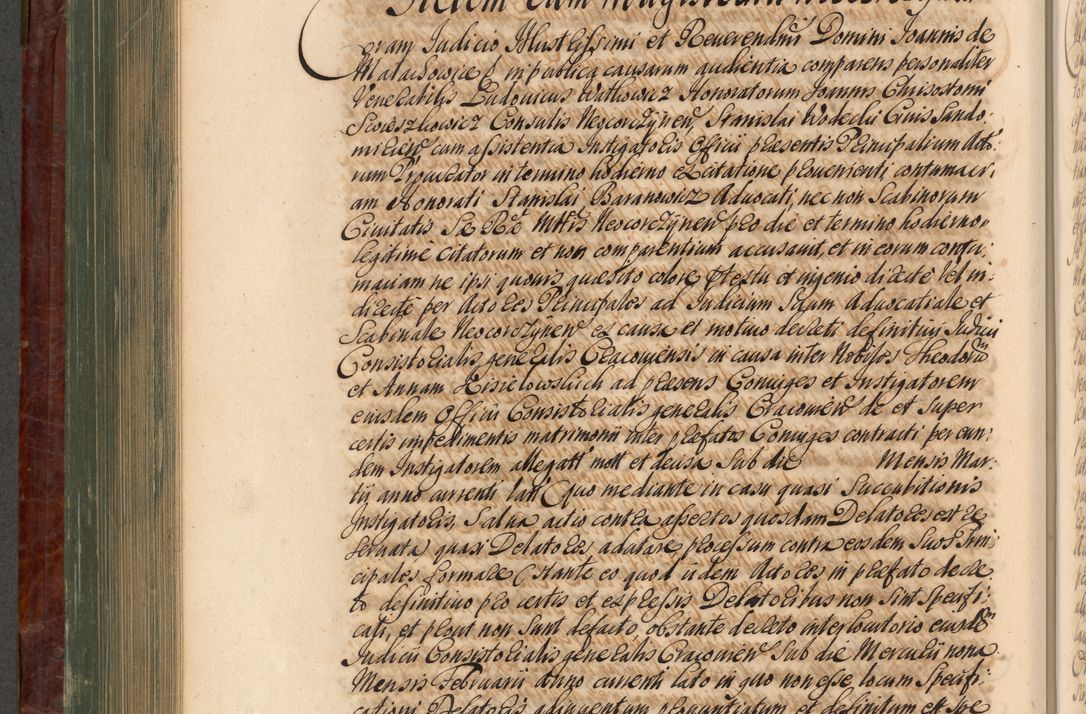 coram Judicio Illustrissimi et Reverendissimi Domini Joannis de
Małachowice in publica causarum audientia comparens personaliter
Venerabilis Ludovicus Watkowicz Honoratorum Joannis Chrisostomi
Consulis Neocorczynen Stanislai Wodecki Civis Sando-
mirien cum assistentia Instigatoris Officii praesentis Principalium Acto-
rum Procurator in termino hodierno ex citatione provenienti contumaci-
am Honorati Stanislai Baranowicz Advocati, nec non Scabinorum
Civitatis Sae Rae Mttis Neocorczynen pro die et termino hodierno
legitime citatorum et non comparentium accusavit, et in eorum contu-
maciam ne ipsi quovis quaesito colore et ingenio directe vel in-
directe per Actores Principales ad Judicium Suum Advocatiale et
Scabinale Neocorczynen ex causa et motivo decreti definitivi Judicii
Consistorialis generalis Cracoviensis in causa inter Nobiles Theodorum
et Annam Kisielowskich ad praesens Coniuges et Instigatorem
eiusdem Officii Consistorialis generalis Cracovien de et super
certis impedimentis matrimonii inter praefatos Coniuges contracti per eun-
dem Instigatorem allegatt mott et decisa Sub die Mensis Mar-
tii anno currenti lati (quo mediante in casu quasi Succubitionis
Instigatoris, Salva actio contra assertos quosdam Delatores est re-
servata) quasi Delatores, adcitare, processum contra eosdem Suos Prin-
cipales formare (stante eo quod iidem Actores in praefato decre-
to definitivo pro certis et expressis Delatoribus non Sint Specifi-
cati, et prout non Sunt de facto, obstante decreto interlocutorio eiusdem
Judicii Consistorialis generalis Cracovien Sub die Mercurii nona
Mensis Februarii Anno currenti lato in quo non esse locum Specifi-
cationi Delatoris pronuntiatum et definitum est